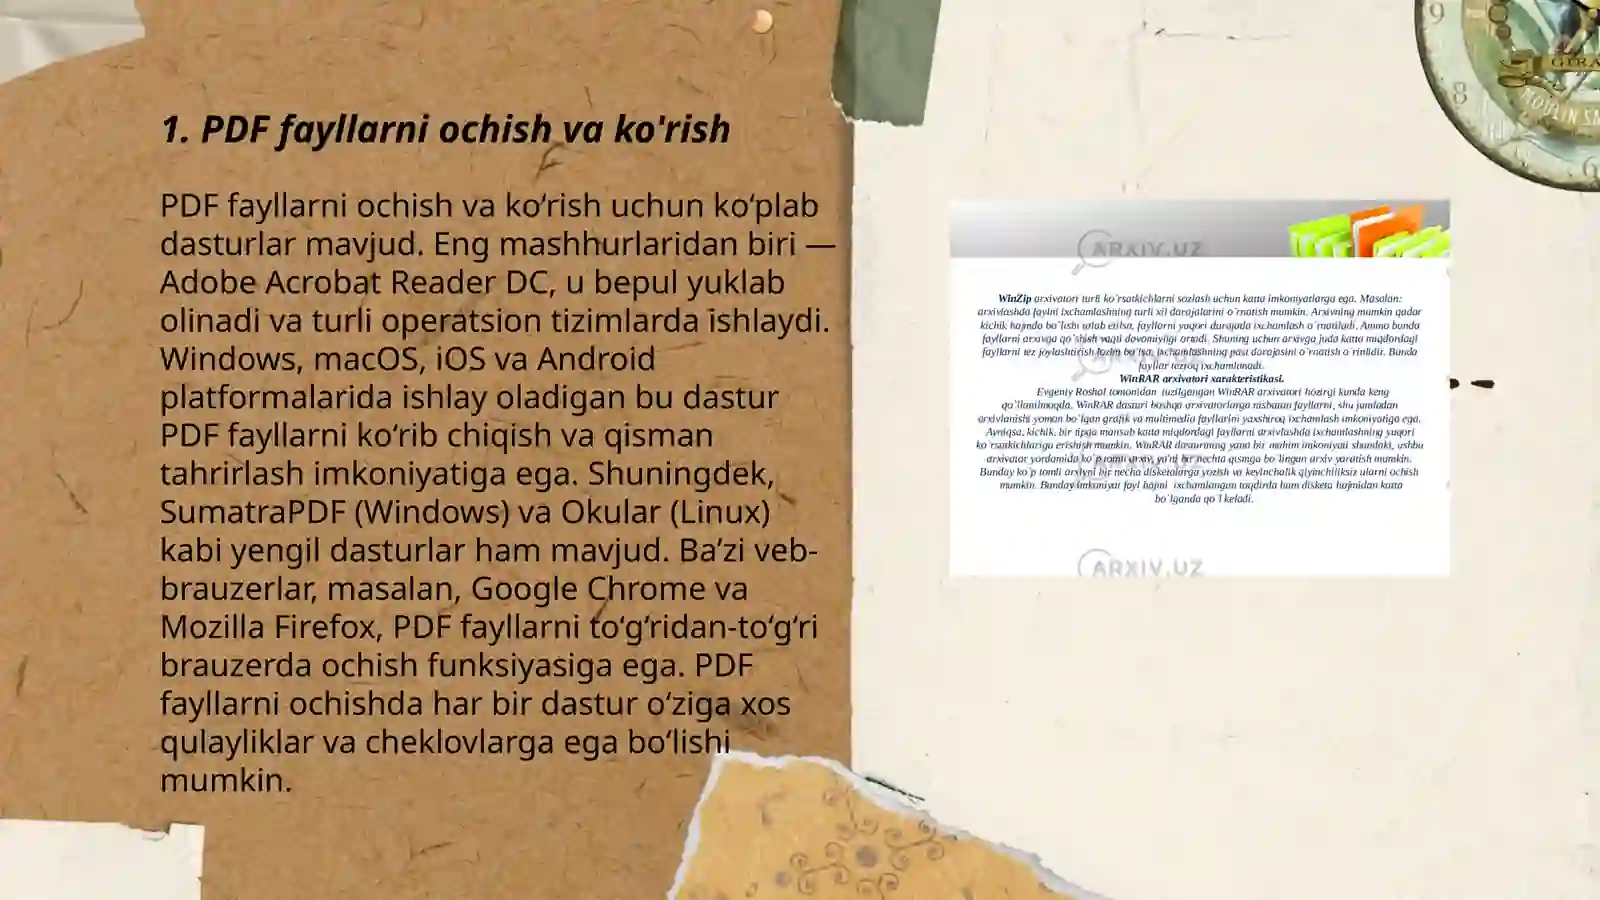 1. PDF fayllarni ochish va ko'rish
PDF fayllarni ochish va ko‘rish uchun ko‘plab
dasturlar mavjud. Eng mashhurlaridan biri —
Adobe Acrobat Reader DC, u bepul yuklab
olinadi va turli operatsion tizimlarda ishlaydi.
Windows, macOS, iOS va Android
platformalarida ishlay oladigan bu dastur
PDF fayllarni ko‘rib chiqish va qisman
tahrirlash imkoniyatiga ega. Shuningdek,
SumatraPDF (Windows) va Okular (Linux)
kabi yengil dasturlar ham mavjud. Ba’zi veb-
brauzerlar, masalan, Google Chrome va
Mozilla Firefox, PDF fayllarni to‘g‘ridan-to‘g‘ri
brauzerda ochish funksiyasiga ega. PDF
fayllarni ochishda har bir dastur o‘ziga xos
qulayliklar va cheklovlarga ega bo‘lishi
mumkin.
ARXIV.UZ
WinZip arxivatori turli ko`rsatkichlarni sozlash uchun katta imkoniyatlarga ega. Masalan:
arxivlashda faylni ixchamlashning turli xil darajalarini o`rnatish mumkin. Arxivning mumkin qadar
kichik hajmda bo`lishi talab etilsa, fayllarni yuqori darajada ixchamlash o`rnatiladi. Ammo bunda
fayllarni arxivga qo`shish vaqti davomiyligi ortadi. Shuning uchun arxivga juda katta miqdordagi
fayllarni tez joylashtirish lozim bo`lsa, ixchamlashning past darajasini o`rnatish o`rinlidir. Bunda
fayllar tezroq ixchamlanadi.
WinRAR arxivatori xarakteristikasi.
Evgeniy Roshal tomonidan tuzilgangan WinRAR arxivatori hozirgi kunda keng
qo`llanilmoqda. WinRAR dasturi boshqa arxivatorlarga nisbatan fayllarni, shu jumladan
arxivlanishi yomon bo`lgan grafik va multimedia fayllarini yaxshiroq ixchamlash imkoniyatiga ega.
Ayniqsa, kichik, bir tipga mansub katta miqdordagi fayllarni arxivlashda ixchamlashning yuqori
ko`rsatkichlariga erishish mumkin. WinRAR dasturining yana bir muhim imkoniyati shundaki, ushbu
arxivator yordamida ko`p tomli arxiv, ya'ni bir nechta qismga bo`lingan arxiv yaratish mumkin.
Bunday ko`p tomli arxivni bir necha disketalarga yozish va keyinchalik qiyinchiliksiz ularni ochish
mumkin. Bunday imkoniyat fayl hajmi ixchamlangan taqdirda ham disketa hajmidan katta
bo`lganda qo`l keladi.
ARXIV.UZ